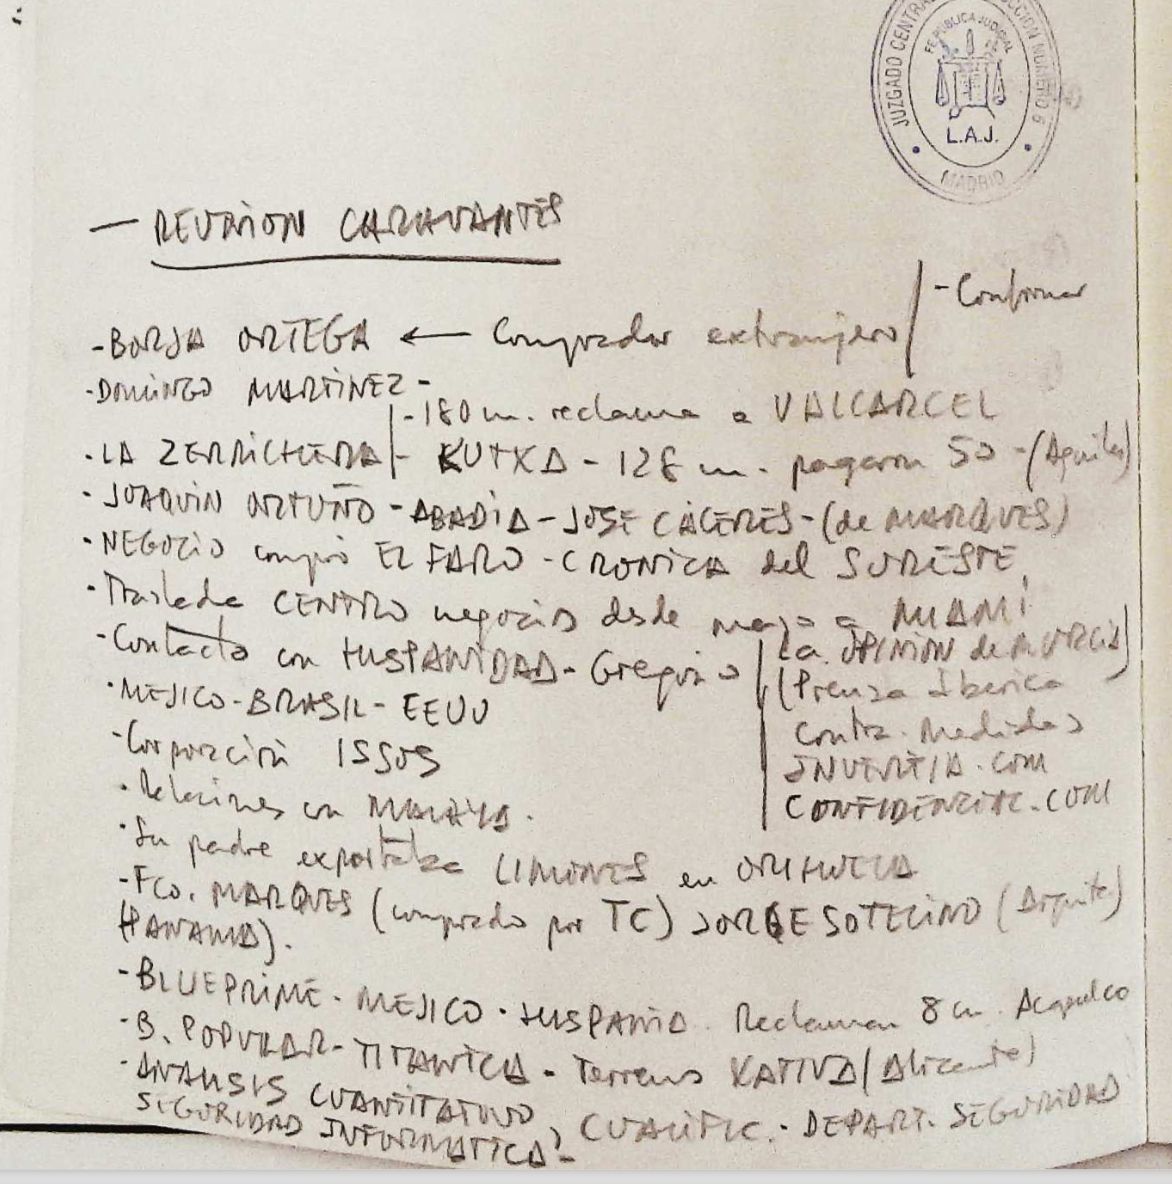 JUZGADO CENTRAL INSTRUCCION NUMERO 6
FE PÚBLICA JUDICIAL
L.A.J.
MADRID
— REUNION CARAVANTES
- Confirmar
- BORJA ORTEGA ← Comprador extranjero
- DOMINGO MARTINEZ -
- 180 m. reclama a VALCARCEL
· LA ZERRICHERA - KUTXA - 128 m. pagaron 50 - (Aguilas)
· JOAQUIN ORTUÑO - ABADIA - JOSE CÁCERES - (de MARQUES)
· NEGOCIO compró EL FARO - CRONICA del SURESTE,
· Traslada CENTRO negocios desde mayo a MIAMI
- Contacto con HISPANIDAD - Gregorio
La OPINION de MURCIA)
(Prensa Iberica
Contra. Medidas
INVERTIA.COM
CONFIDENCIAL.COM
· MEJICO - BRASIL - EEUU
- Corporación ISSOS
· Relaciones con MALAYA.
· Su padre exportaba LIMONES en ORIHUELA
- FCO. MARQUES (comprado por TC) JORGE SOTELINO (Arquite)
PANAMA).
- BLUEPRIME - MEJICO - HISPANIA. Reclaman 8 m. Acapulco
- B. POPULAR - TITANICA - Terrenos XATIVA (Alicante)
- ANALISIS CUANTITATIVO, CUALITIC. - DEPART. SEGURIDAD
SEGURIDAD INFORMATICA -